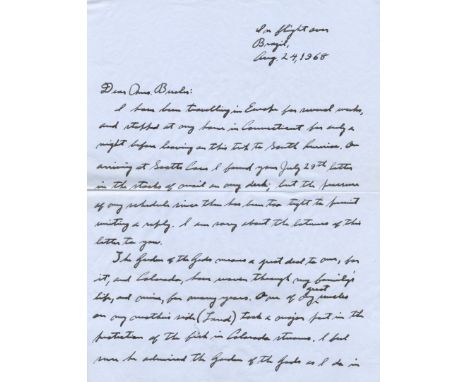 In flight over
Brazil,
Aug. 24, 1968
Dear Mrs.
I have been travelling in Europe for several weeks,
and stopped at my home in Connecticut for only a
night before leaving on this trip to South America. On
arriving at Scott's Cove I found your July 29th letter
in the stacks of mail on my desk; but the pressure
of my schedule since then has been too tight to permit
writing a reply. I am sorry about the lateness of this
letter to you.
The Garden of the Gods means a great deal to me, for
it, and Colorado, have woven through my family's
life, and mine, for many years. One of my great uncles
on my mother's side (Land) took a major part in the
protection of the fish in Colorado streams. I feel
sure he admired the Garden of the Gods as I do in